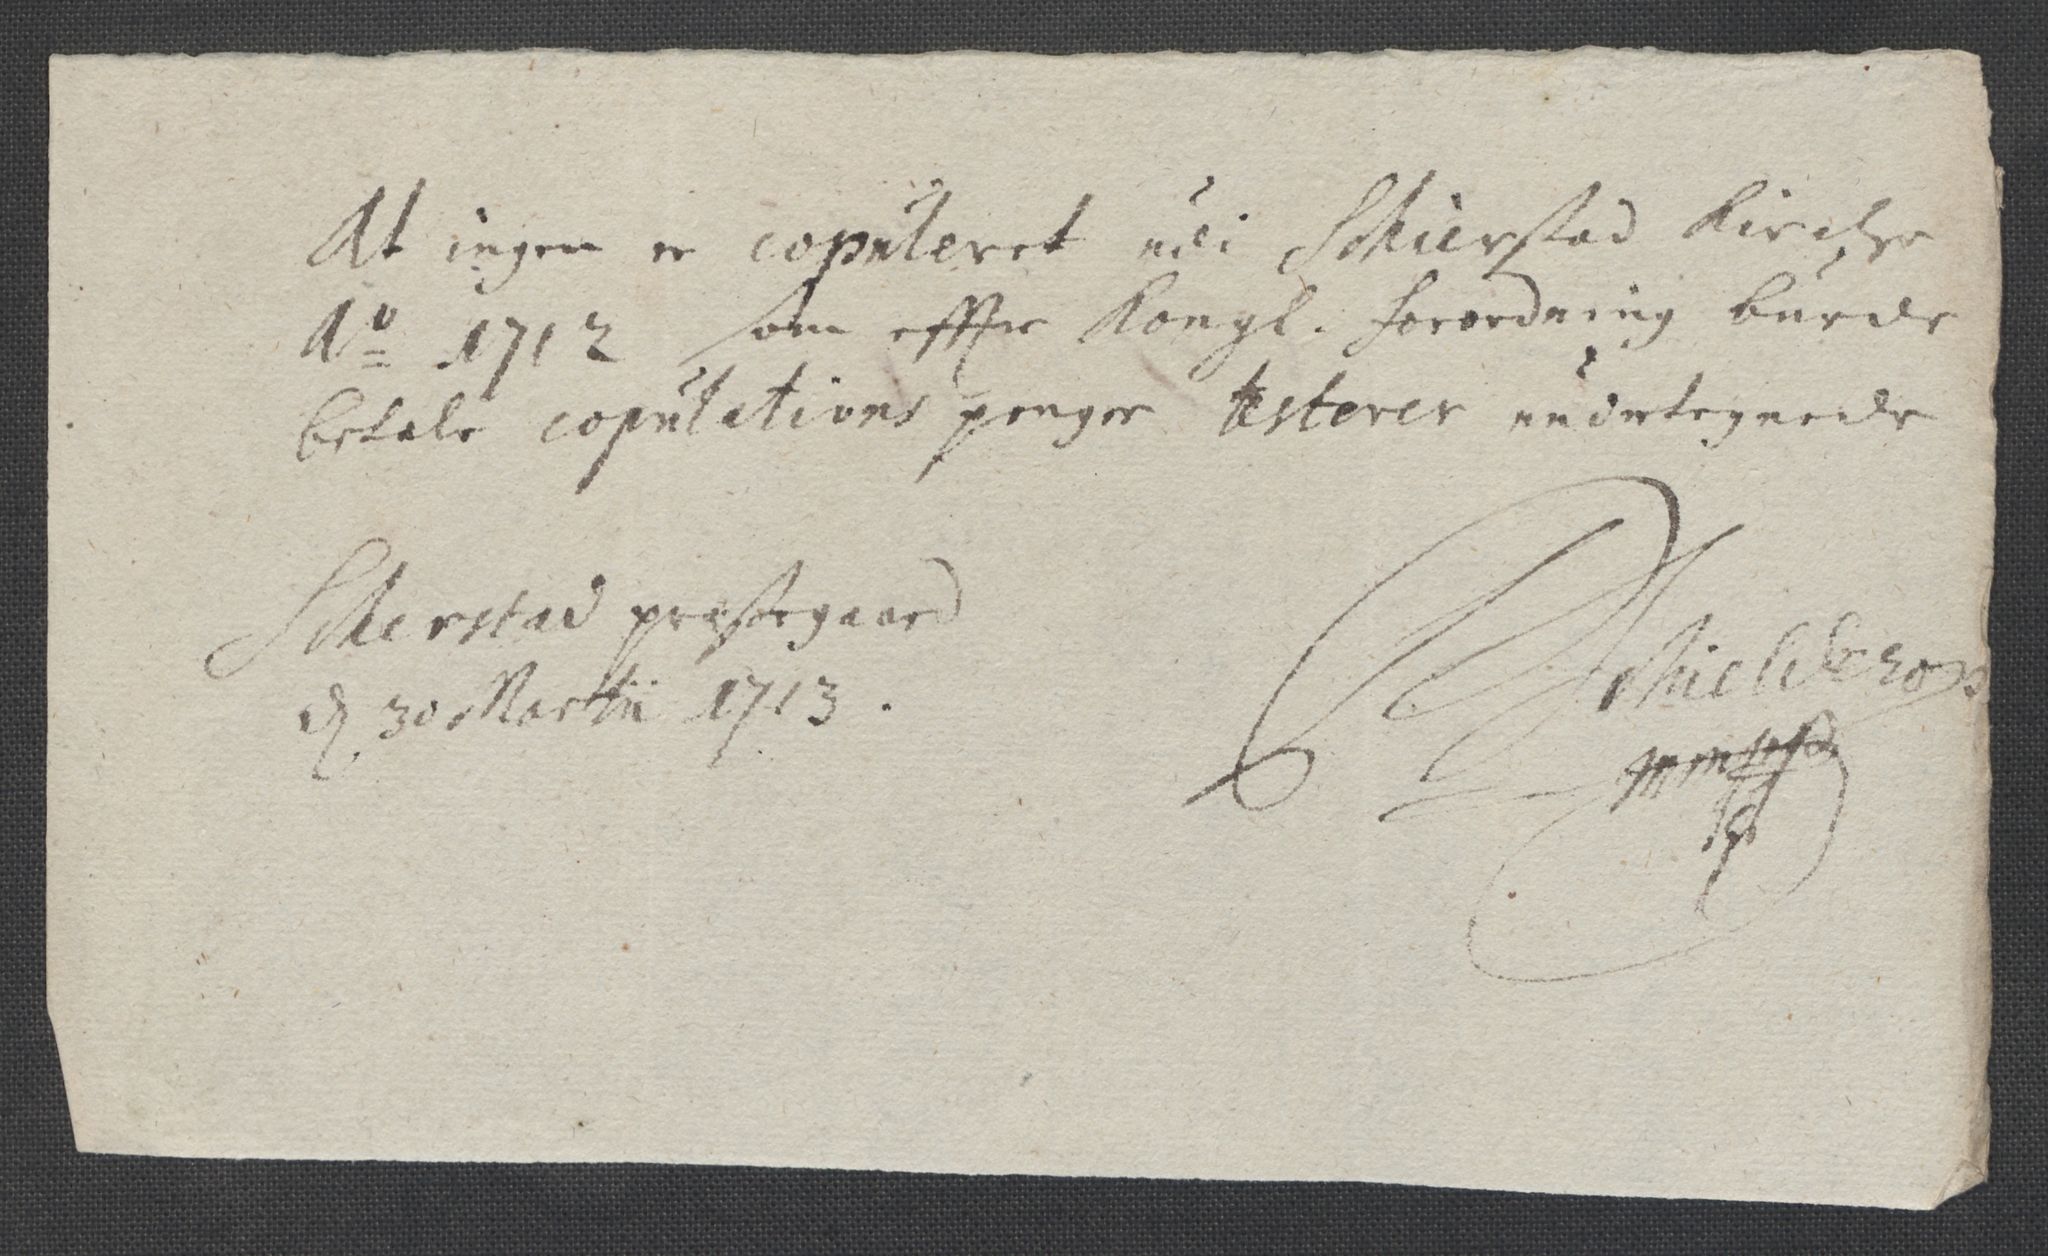 At ingen er copuleret udi Schierstad Kirche
Ao 1712 som effter Kongl. forordning burde
betale copulations penger testerer undertegnede
Schierstad præstegaard
d 30 Martii 1713.